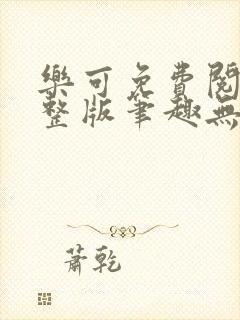 樂可免費閱
整版筆趣無
蕭乾